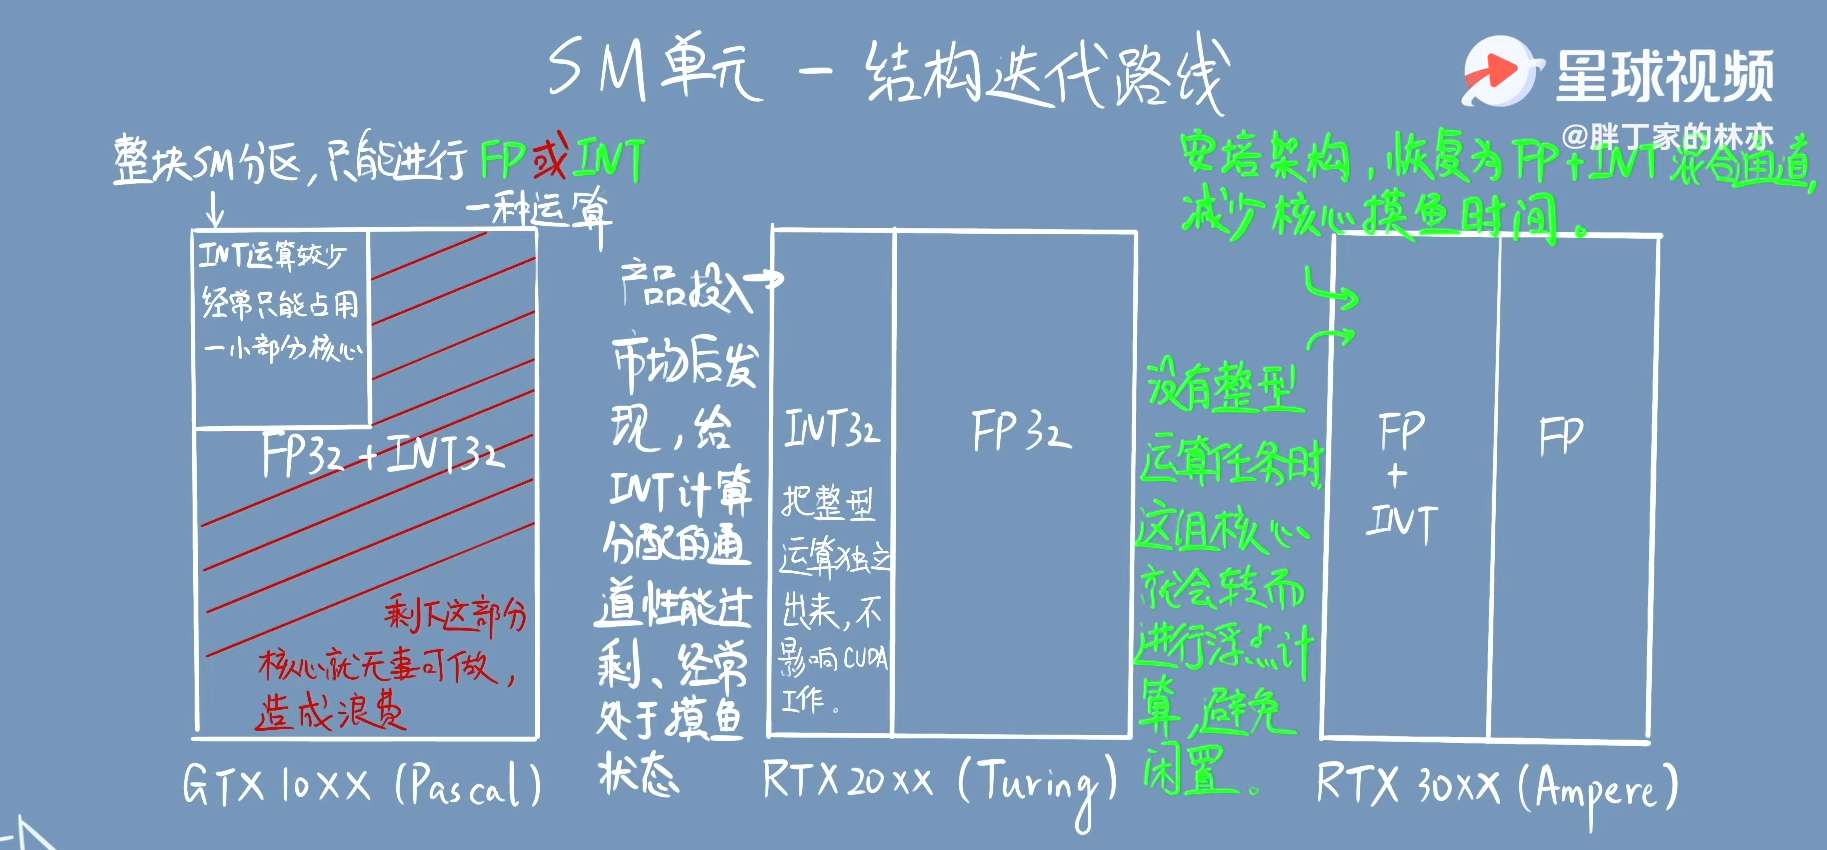 SM单元 - 结构迭代路线
星球视频
@胖丁家的林亦
整块SM分区，只能进行 FP或INT
一种运算
INT运算较少
经常只能占用
一小部分核心
FP32 + INT32
剩下这部分
核心就无事可做，
造成浪费
GTX 10XX (Pascal)
产品投入
市场后发
现，给
INT计算
分配的通
道性能过
剩、经常
处于摸鱼
状态
INT32
把整型
运算独立
出来，不
影响CUDA
工作。
FP32
RTX 20XX (Turing)
安培架构，恢复为FP+INT混合通道，
减少核心摸鱼时间。
没有整型
运算任务时，
这组核心
就会转而
进行浮点计
算，避免
闲置。
FP
+
INT
FP
RTX 30XX (Ampere)